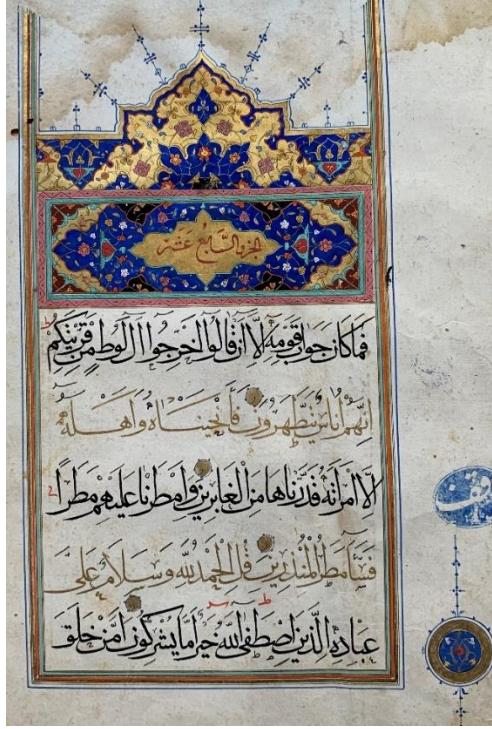 الجزء عشر
فَمَا كَانَ جَوَابَ قَوْمِهِ اِلَّا اَنْ قَالُوا اَخْرِجُوا اٰلَ لُوطٍ مِنْ قَرْيَتِكُمْ
اِنَّهُمْ اُنَاسٌ يَتَطَهَّرُونَ فَاَنْجَيْنَاهُ وَاَهْلَهُ
اِلَّا امْرَاَتَهُ قَدَّرْنَاهَا مِنَ الْغَابِرِينَ وَاَمْطَرْنَا عَلَيْهِمْ مَطَرًا
فَسَاءَ مَطَرُ الْمُنْذَرِينَ قُلِ الْحَمْدُ لِلّٰهِ وَسَلَامٌ عَلَى
عِبَادِهِ الَّذِينَ اصْطَفَى اللّٰهُ خَيْرٌ اَمَّا يُشْرِكُونَ اَمَّنْ خَلَقَ
وقف